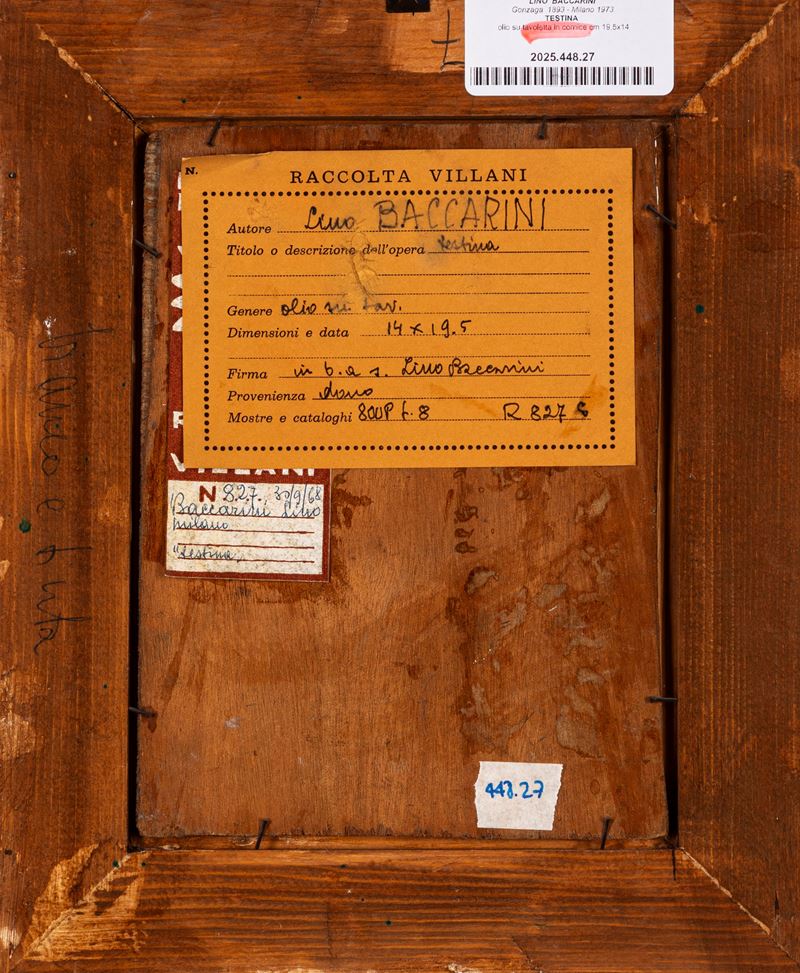 LINO BACCARINI
Gonzaga 1893 - Milano 1973
TESTINA
olio su tavoletta in cornice cm 19,5x14
2025.448.27
N.
RACCOLTA VILLANI
Autore Lino BACCARINI
Titolo o descrizione dell'opera testina
Genere olio su tav.
Dimensioni e data 14 x 19.5
Firma in b. a s. Lino Baccarini
Provenienza dono
Mostre e cataloghi f. 8 R 827
VILLANI
N 827. 30/9/68
Baccarini Lino
milano
"testina"
448.27